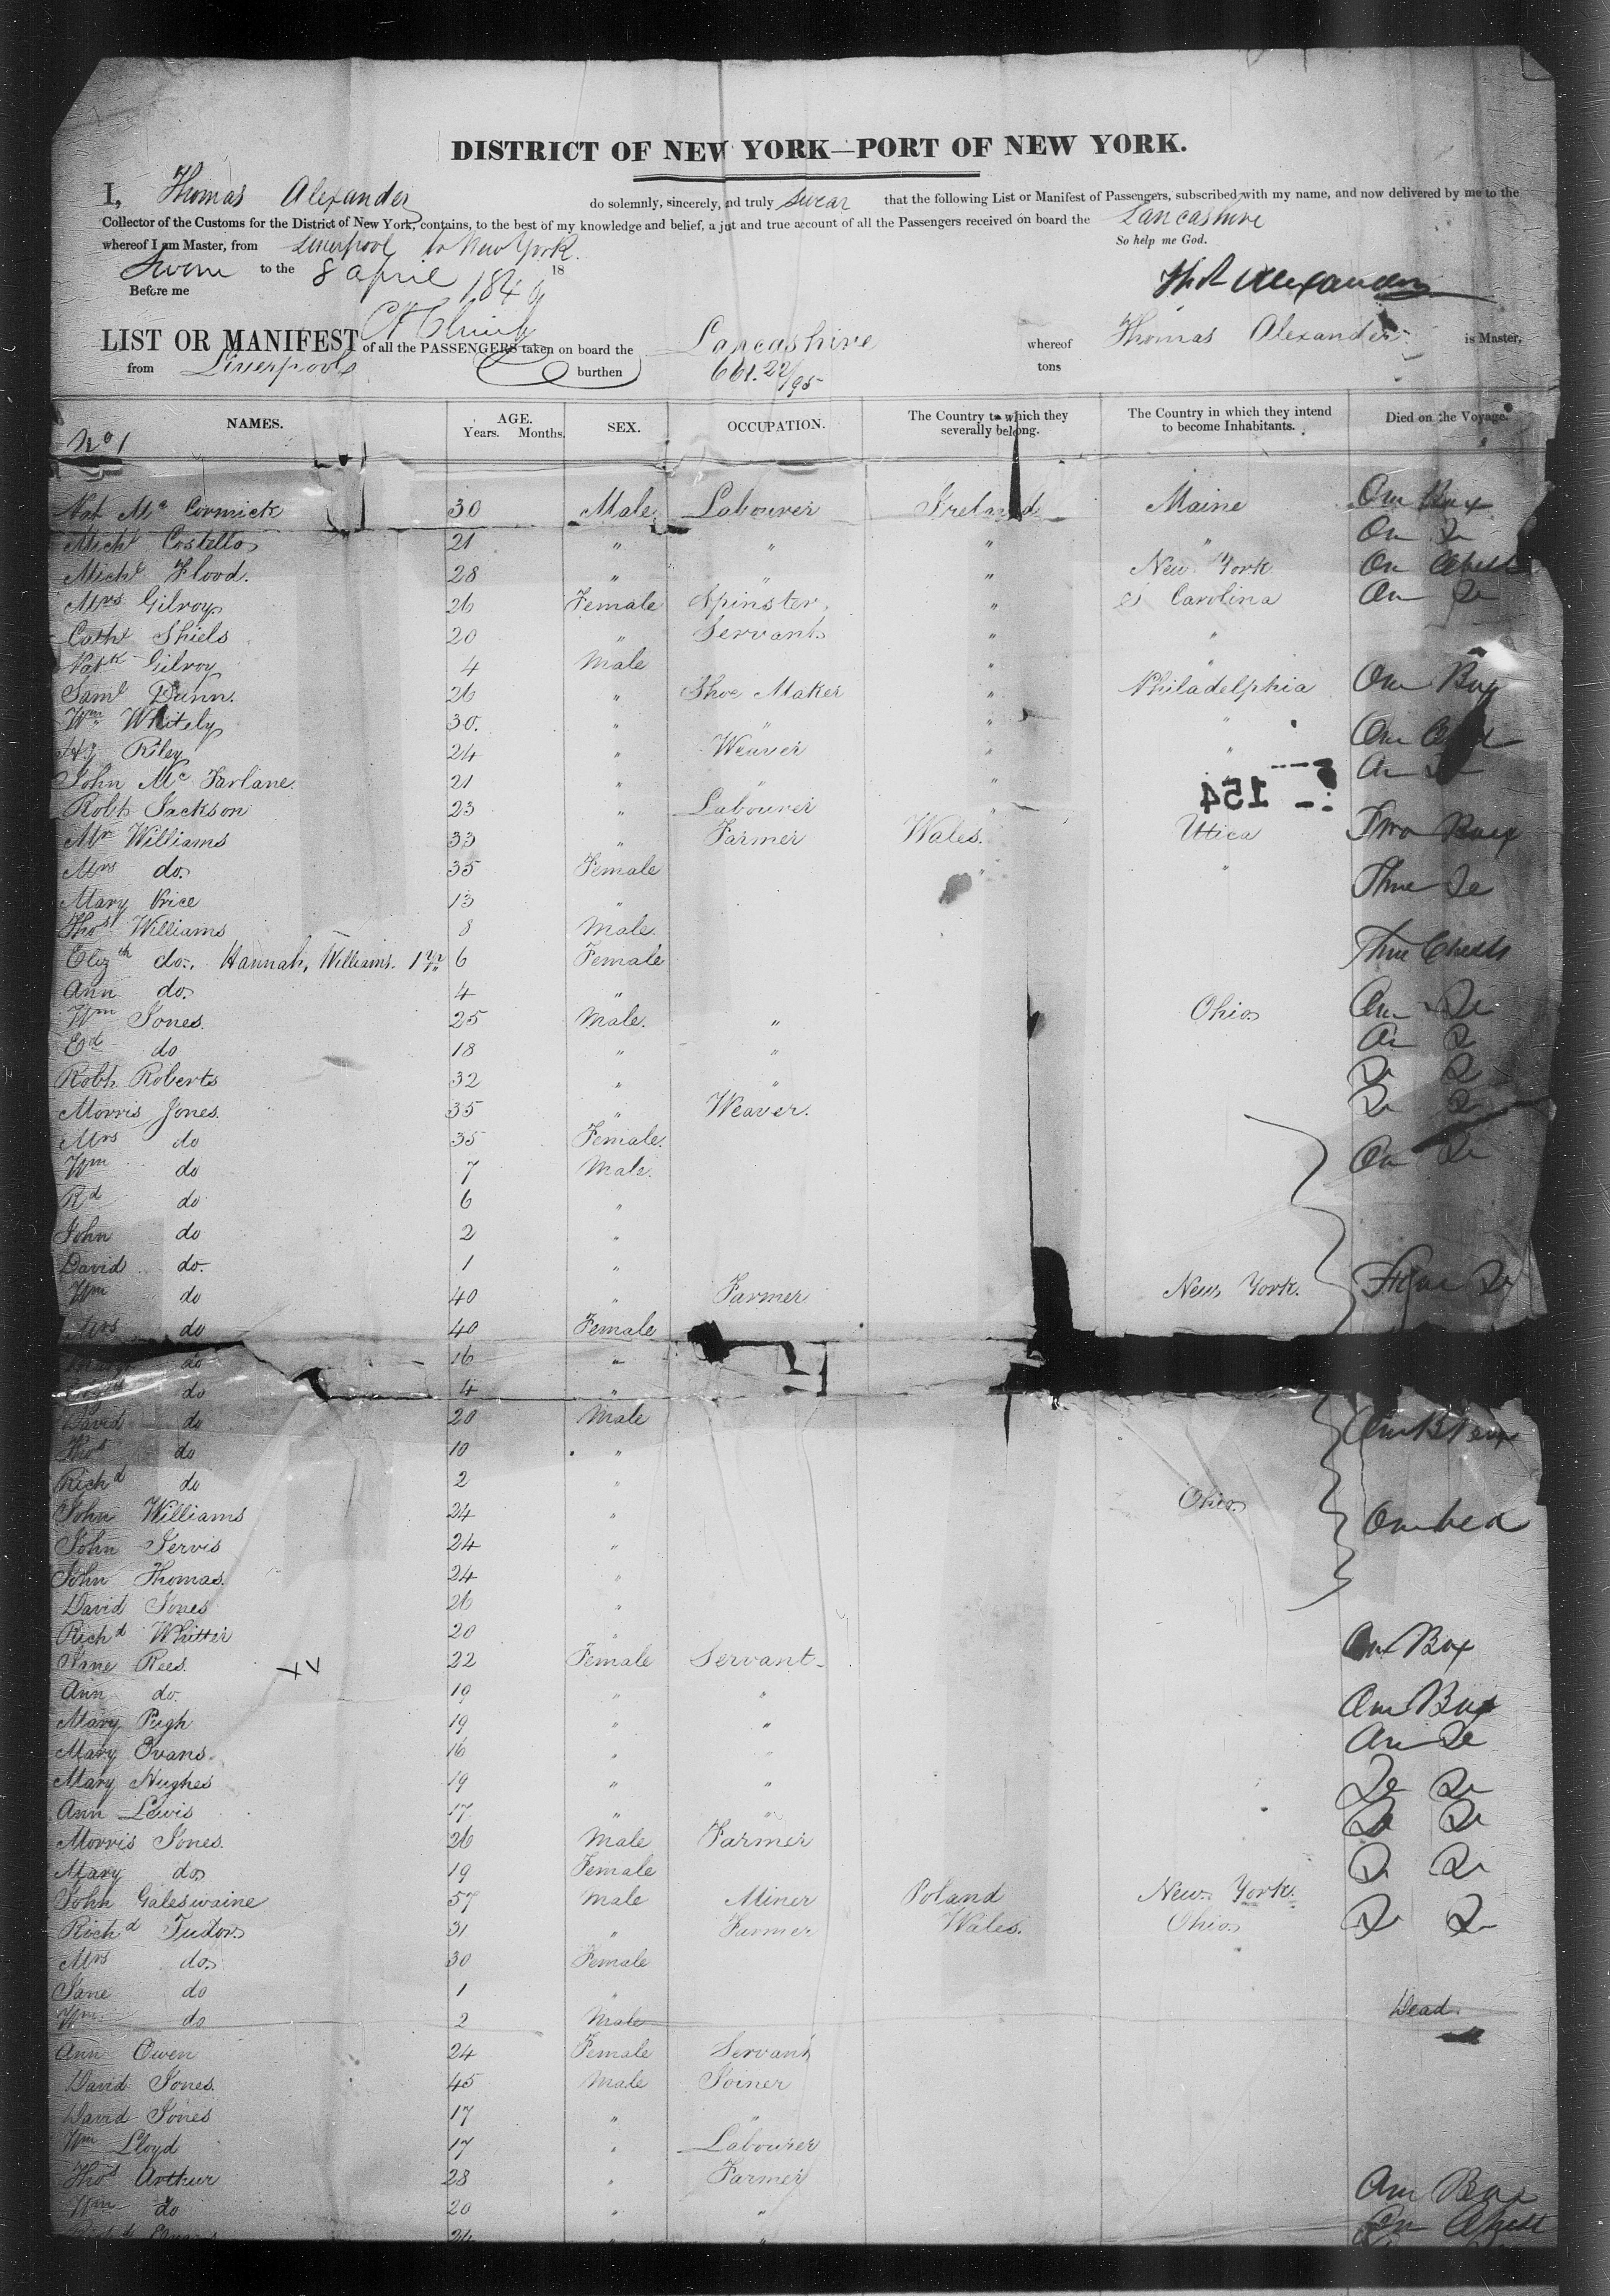 DISTRICT OF NEW YORK—PORT OF NEW YORK.
I, Thomas Alexander do solemnly, sincerely, and truly swear that the following List or Manifest of Passengers, subscribed with my name, and now delivered by me to the
Collector of the Customs for the District of New York, contains, to the best of my knowledge and belief, a just and true account of all the Passengers received on board the Lancashire
whereof I am Master, from Liverpool to New York. So help me God.
Sworn to the 8 April 1840 18
Before me
Thos Alexander
LIST OR MANIFEST of all the PASSENGERS taken on board the Lancashire whereof Thomas Alexander is Master,
from Liverpool burthen 661.22/95 tons
NAMES. AGE. Years. Months. SEX. OCCUPATION. The Country to which they severally belong. The Country in which they intend to become Inhabitants. Died on the Voyage.
No 1
Mc Cormick 30 Male Labourer Ireland Maine One Box
Michl Costello 21 " " " " One Do
Michl Flood. 28 " " " New York One Chest
Mrs Gilroy 26 Female Spinster " Carolina One Do
Cathe Shiels 20 " Servant " "
Patk Gilroy 4 Male " "
Saml Dunn. 26 " Shoe Maker " Philadelphia One Box
Wm Whitely 30. " " " "
Riley 24 " Weaver " " One Chest
John Mc Farlane 21 " " " One Do
Robt Jackson 23 " Labourer "
154
Mr Williams 33 " Farmer Wales. Utica Two Box
Mrs do 35 Female " " Three Do
Mary Price 13 "
Thos Williams 8 Male.
Elizth do. Hannah, Williams. 1 6 Female Three Chests
Ann do. 4 "
Wm Jones. 25 Male. " Ohio One Do
Ed do 18 " " One Do
Robt Roberts 32 " " Do Do
Morris Jones. 35 " Weaver. Do Do
Mrs do 35 Female.
Wm do 7 Male. One Do
Rd do 6 "
John do 2 "
David do. 1 "
Wm do 40 " Farmer New York. Do
Mrs do 40 Female
do 16 "
do 4 "
David do 20 Male One Box
Thos do 10 "
Richd do 2 "
John Williams 24 " Ohio
John Jervis 24 "
John Thomas. 24 "
David Jones 26 "
Richd Whitter 20 " One Box
Jane Rees. 22 Female Servant
Ann do. 19 " " One Box
Mary Pugh 19 " " One Do
Mary Evans. 16 " "
Mary Hughes 19 " " Do Do
Ann Lewis 17 " " Do Do
Morris Jones. 26 Male Farmer
Mary do 19 Female Do Do
John Galeswaine 57 Male Miner Poland New York.
Richd Tudor 31 " Farmer Wales. Ohio Do Do
Mrs do 30 Female
Jane do 1 "
Wm do 2 Male Dead.
Ann Owen 24 Female Servant
David Jones. 45 Male Joiner
David Jones 17 " "
Wm Lloyd 17 " Labourer
Thos Arthur 28 " Farmer One Box
Wm do 20 " " One Chest
Richd Evans 24 " "